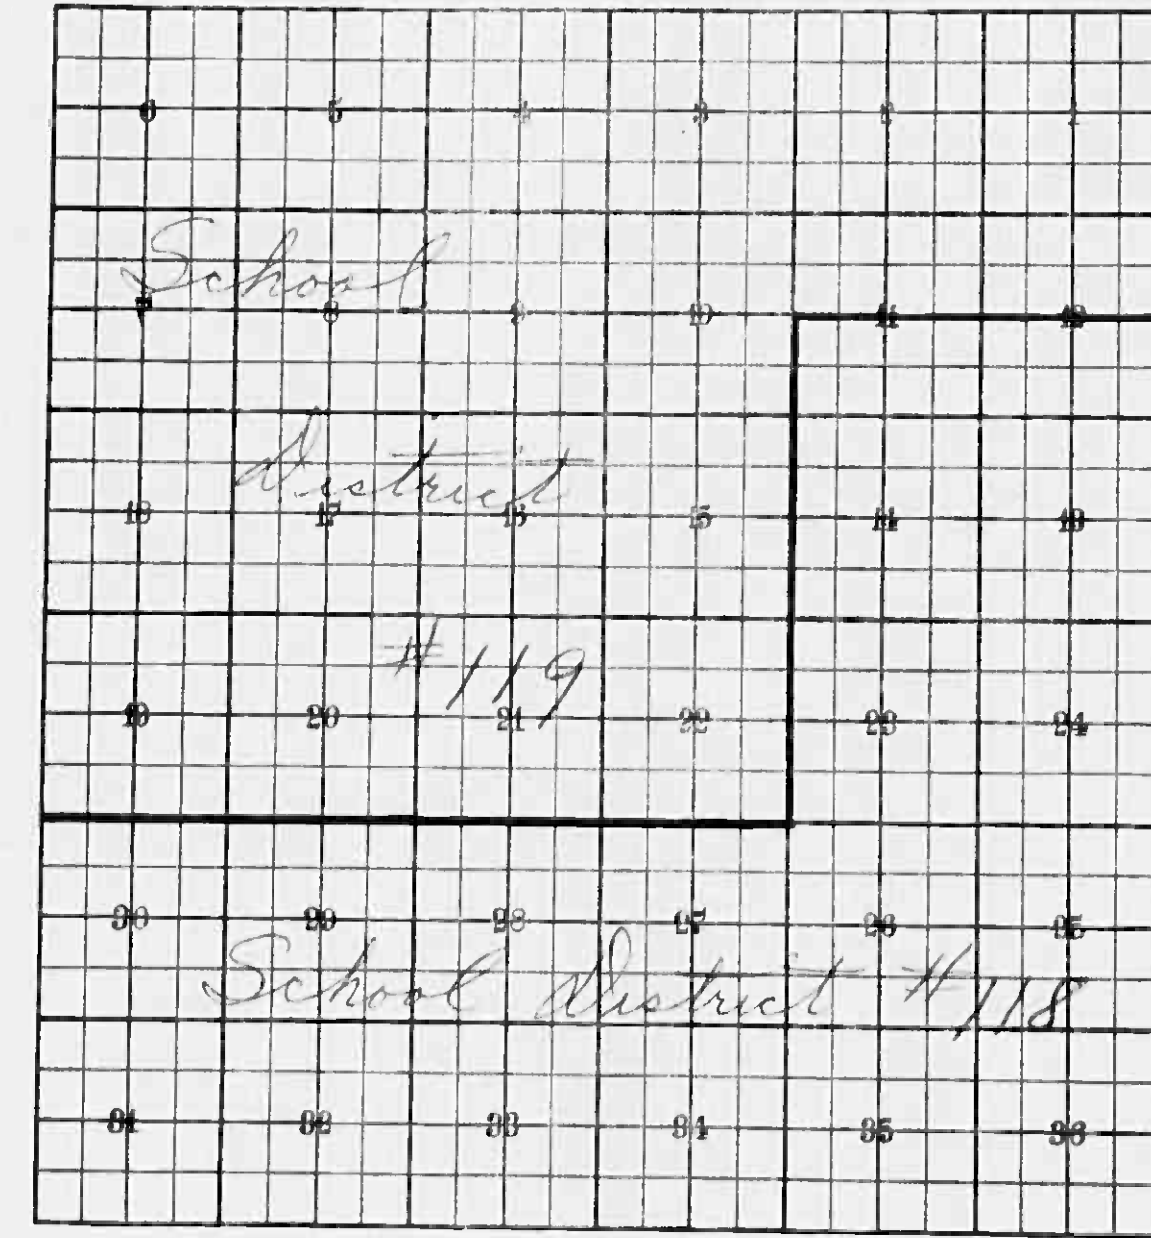 6 5 4 3 2 1
School
7 8 9 10 11 12
District
18 17 16 15 14 13
# 119
19 20 21 22 23 24
30 29 28 27 26 25
School District # 118
31 32 33 34 35 36